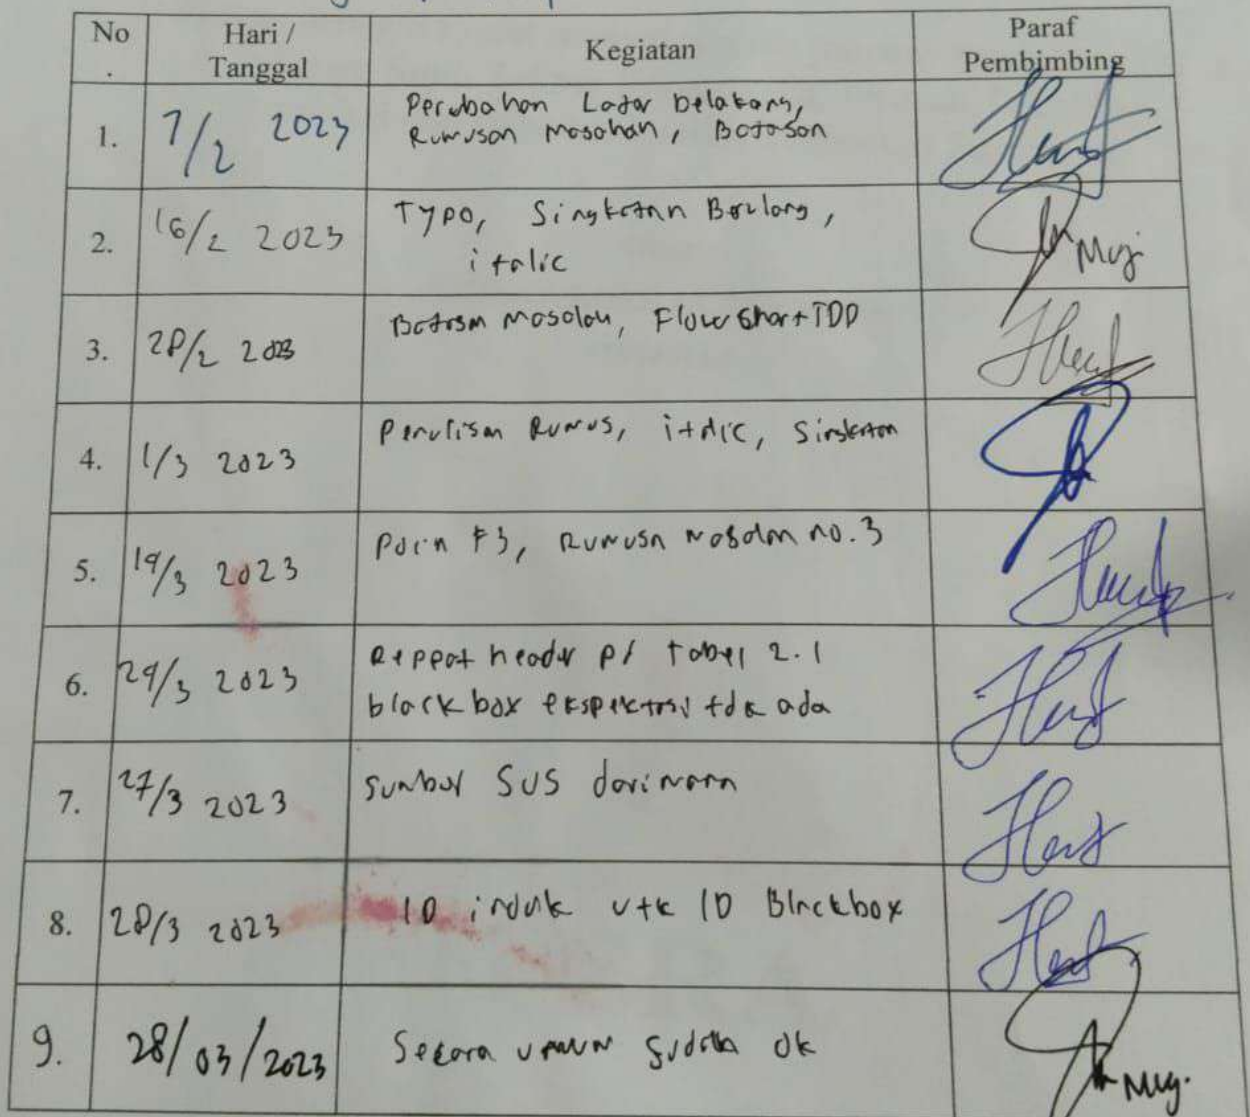 No
.
Hari /
Tanggal
Kegiatan
Paraf
Pembimbing
1.
7/2 2023
Perubahan Latar belakang,
Rumusan Masahan, Batasan
2.
16/2 2023
Typo, Singkatan Berulang,
italic
Muj
3.
28/2 2023
Batasan Masalah, Flowchart TDD
4.
1/3 2023
Penulisan Rumus, italic, Singkatan
5.
19/3 2023
Rumusan Masalah no. 3
6.
29/3 2023
Reppat header p/ tabel 2.1
black box ekspektasi tdk ada
7.
27/3 2023
Sumber SUS dari mana
8.
28/3 2023
ID induk utk ID Blackbox
9.
28/03/2023
Secara umum sudah ok
Muj.